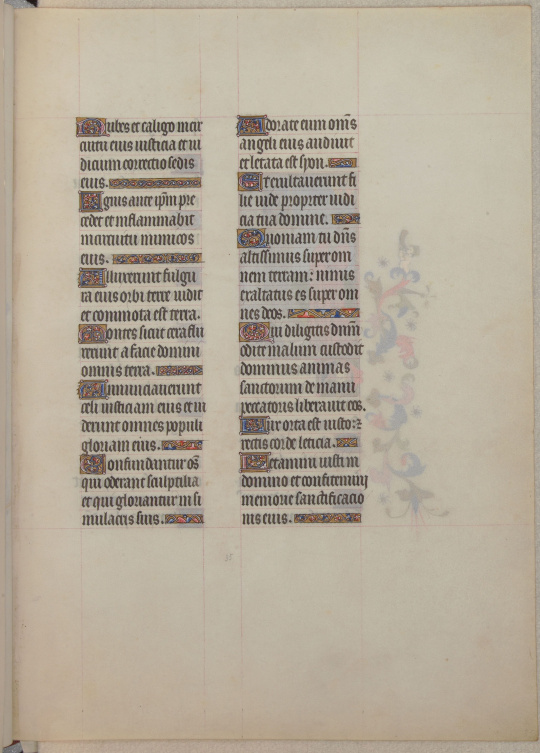 Nubes et caligo in cir
cuitu eius iusticia et iu
dicium correctio sedis
eius.
Ignis ante ipm̄ pre
cedet et inflammabit
in circuitu inimicos
eius.
Alluxerunt fulgu
ra eius orbi terre uidit
et commota est terra.
Montes sicut cera flu
xerunt a facie domini
omnis terra.
Annunciauerunt
celi iusticiam eius et ui
derunt omnes populi
gloriam eius.
Confundantur oēs
qui adorant sculptilia
et qui gloriantur in si
mulacris suis.
Adorate eum om̄s
angeli eius audiuit
et letata est syon.
Et exultauerunt fi
lie iude propter iudi
cia tua domine.
Quoniam tu dn̄s
altissimus super om
nem terram: nimis
exaltatus es super om
nes deos.
Qui diligitis dnm̄
odite malum custodit
dominus animas
sanctorum de manu
peccatoris liberauit eos.
Lux orta est iusto: ⁊
rectis corde leticia.
Letamini iusti in
domino et confitemini
memorie sanctificacio
nis eius.